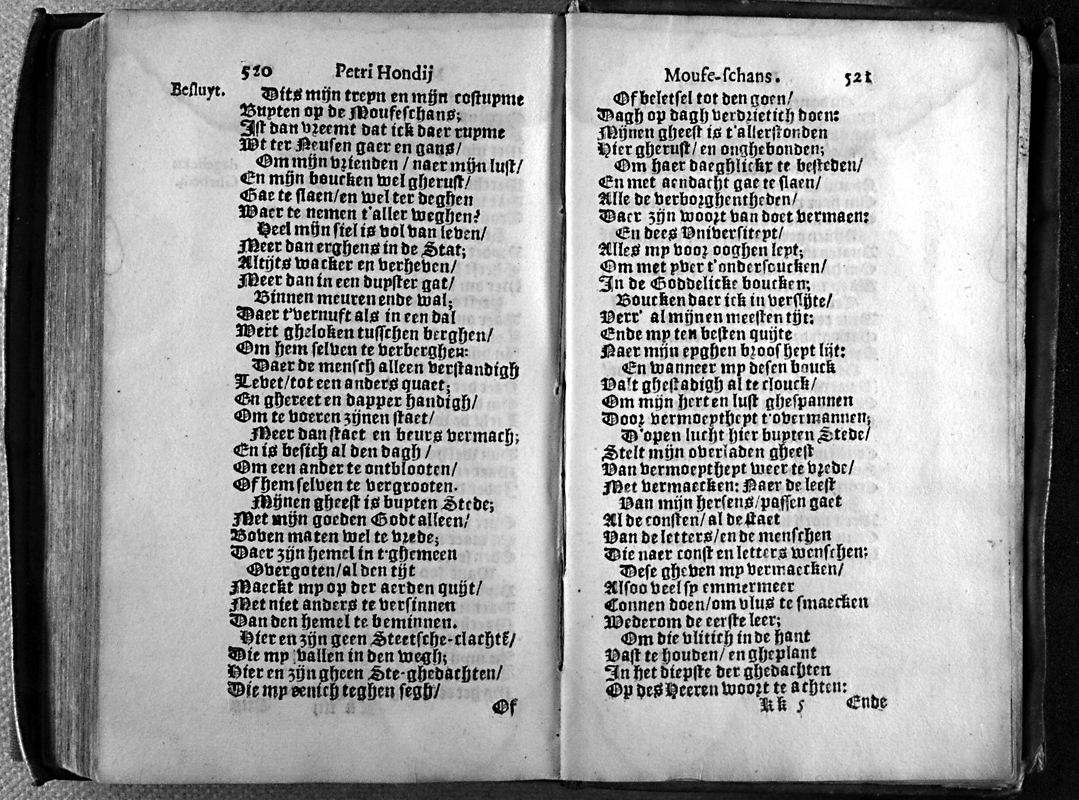 520 Petri Hondij
Besluyt.
Dits mijn treyn en mijn costuyme
Buyten op de Moufeschans;
Ist dan vreemt dat ick daer ruyme
Wt ter Neusen gaer en gans/
Om mijn vrienden / naer mijn lust/
En mijn boucken wel gherust/
Gae te slaen/en wel ter deghen
Waer te nemen t'aller weghen?
Heel mijn siel is vol van leven/
Meer dan erghens in de Stat;
Altijts wacker en verheven/
Meer dan in een duyster gat/
Binnen meuren ende wal;
Daer t'vernuft als in een dal
Wert gheloken tusschen berghen/
Om hem selven te verberghen:
Daer de mensch alleen verstandigh
Levet/tot een anders quaet;
En ghereet en dapper handigh/
Om te voeren zijnen staet/
Meer dan staet en beurs vermach;
En is besich al den dagh /
Om een ander te ontblooten/
Of hem selven te vergrooten.
Mijnen gheest is buyten Stede;
Met mijn goeden Godt alleen/
Boven maten wel te vrede;
Daer zijn hemel in t'ghemeen
Overgoten/al den tijt
Maeckt my op der aerden quijt/
Met niet anders te versinnen
Van den hemel te beminnen.
Hier en zijn geen Steetsche-clachtē/
Die my vallen in den wegh;
Hier en zijn gheen Ste-ghedachten/
Die my eenich teghen segh/
Of
Moufe-schans. 521
Of beletsel tot den goen/
Dagh op dagh verdrietich doen:
Mijnen gheest is t'allerstonden
Hier gherust/ en onghebonden;
Om haer daeghlickx te besteden/
En met aendacht gae te slaen/
Alle de verborghentheden/
Daer zijn woort van doet vermaen:
En dees Universiteyt/
Alles my voor ooghen leyt;
Om met yver t'ondersoucken/
In de Goddelicke boucken;
Boucken daer ick in verslijte/
Verr' al mijnen meesten tijt:
Ende my ten besten quijte
Naer mijn eyghen broosheyt lijt:
En wanneer my desen bouck
Valt ghestadigh al te clouck/
Om mijn hert en lust ghespannen
Door vermoeytheyt t'overmannen;
D'open lucht hier buyten Stede/
Stelt mijn overladen gheest
Van vermoeytheyt weer te vrede/
Met vermaecken: Naer de leest
Van mijn hersens/passen gaet
Al de consten/ al de staet
Van de letters/en de menschen
Die naer const en letters wenschen:
Dese gheven my vermaecken/
Alsoo veel sy emmermeer
Connen doen/om vlus te smaecken
Wederom de eerste leer;
Om die vlitich in de hant
Vast te houden/ en gheplant
In het diepste der ghedachten
Op des Heeren woort te achten:
Kk 5 Ende